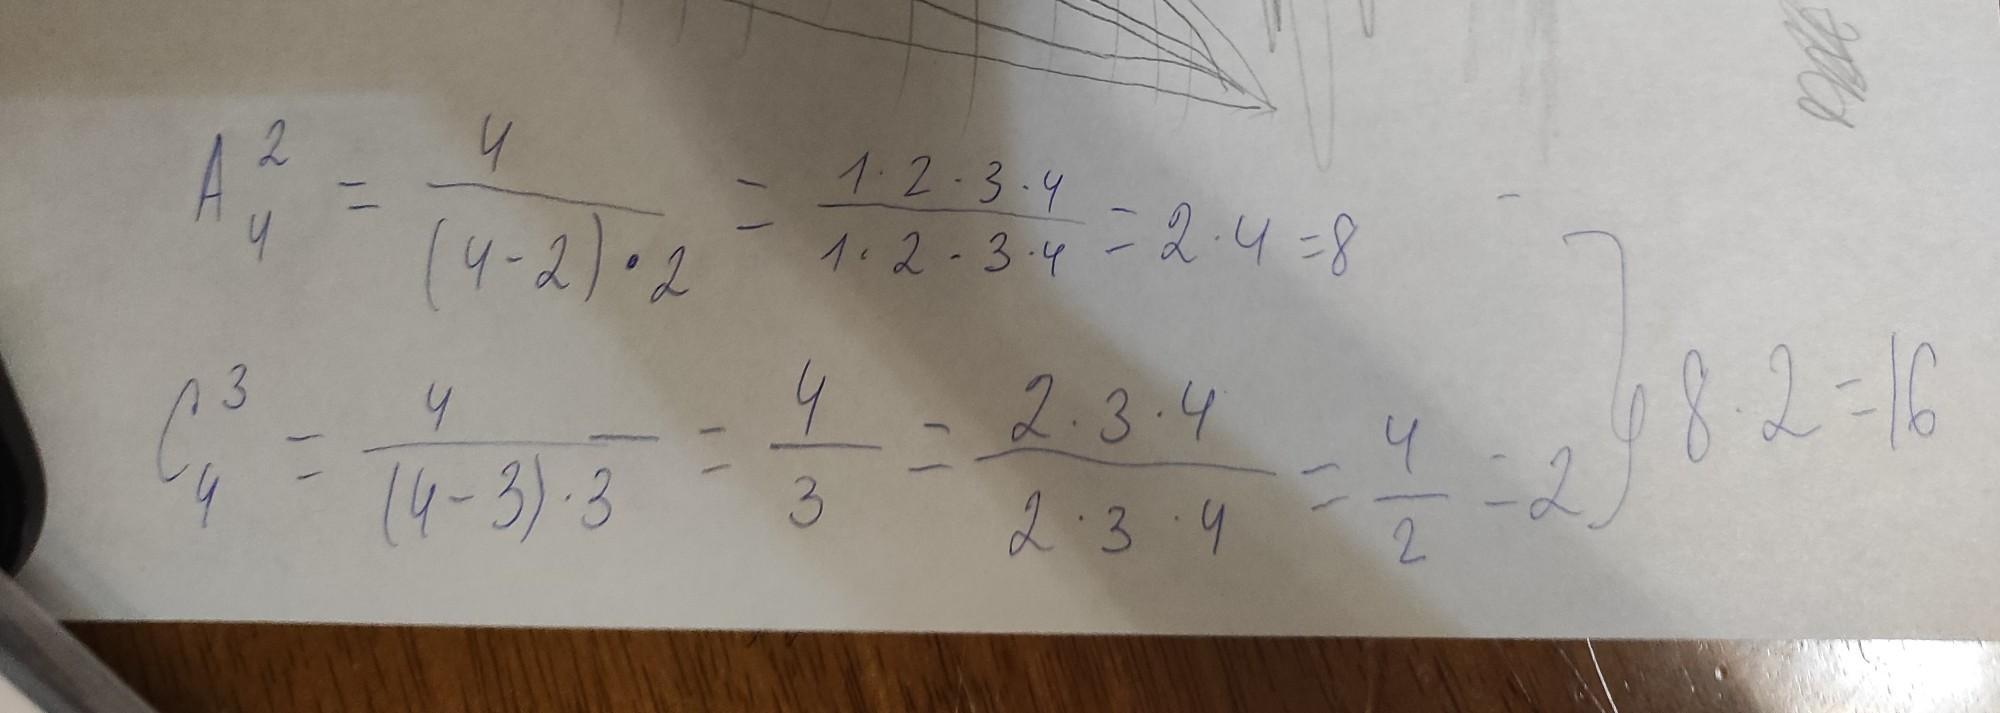 A_4^2 = 4/((4-2)·2) = (1·2·3·4)/(1·2·3·4) = 2·4=8
C_4^3 = 4/((4-3)·3) = 4/3 = (2·3·4)/(2·3·4) = 4/2 = 2
8·2=16